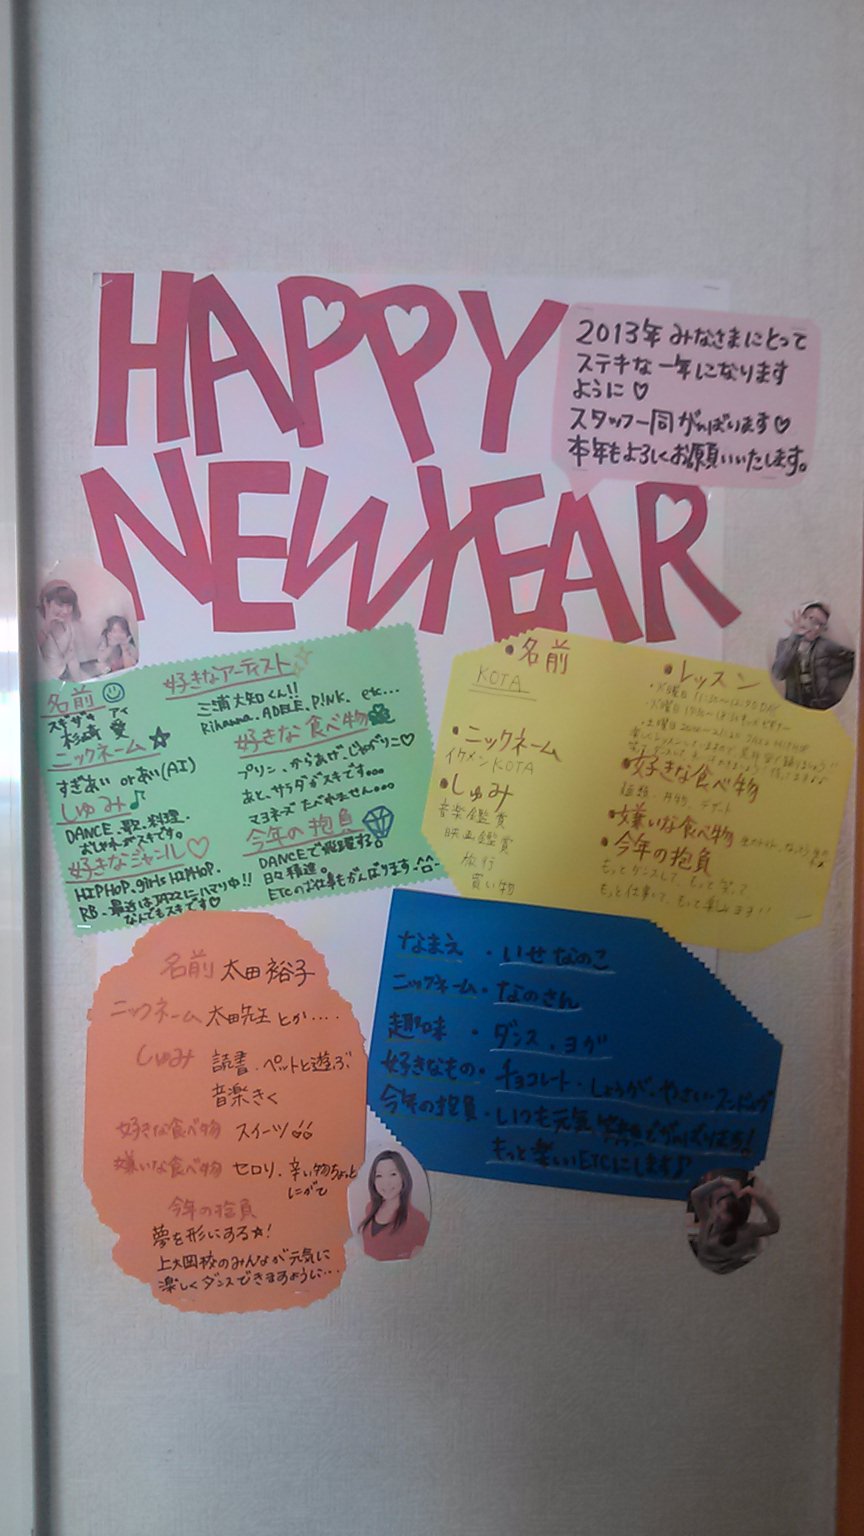 HAPPY
NEW YEAR
2013年 みなさまにとって
ステキな一年になります
ように♡
スタッフ一同がんばります♡
本年もよろしくお願いいたします。
名前
スギザキ アイ
杉崎 愛
ニックネーム
すぎあい orあい(AI)
しゅみ♪
DANCE.歌.料理.
おしゃれがスキです。
好きなジャンル♡
HIPHOP.giRls HIPHOP.
RB.最近はJAZZにハマり中!!
なんでもスキです♡
好きなアーティスト
三浦大知くん!!
Rihanna.ADELE.P!NK. etc...
好きな食べ物
プリン、からあげ、じゃがりこ♡
あと、サラダがスキです。。。
マヨネーズ たべれません...
今年の抱負
DANCEで飛躍する。
日々精進。
ETCのお仕事もがんばります
・名前
KOTA
・ニックネーム
イケメンKOTA
・しゅみ
音楽鑑賞
映画鑑賞
旅行
買い物
・レッスン
・火曜日
・火曜日
・土曜日
・好きな食べ物
麺類、丼物、デザート
・嫌いな食べ物
・今年の抱負
もっとダンスして、もっと笑って
もっと仕事して、もっと楽しみます!!
名前 太田 裕子
ニックネーム 太田先生 とか....
しゅみ 読書.ペットと遊ぶ
音楽きく
好きな食べ物 スイーツ
嫌いな食べ物 セロリ.辛い物ちょっと
にがて
今年の抱負
夢を形にする☆!
上大岡校のみんなが元気に
楽しくダンスできますように...
なまえ ・いせ なのこ
ニックネーム・なのさん
趣味 ・ダンス.ヨガ
好きなもの・チョコレート・しょうが・やさい
今年の抱負・いつも元気 笑顔でがんばります!
もっと楽しいETCにします♪